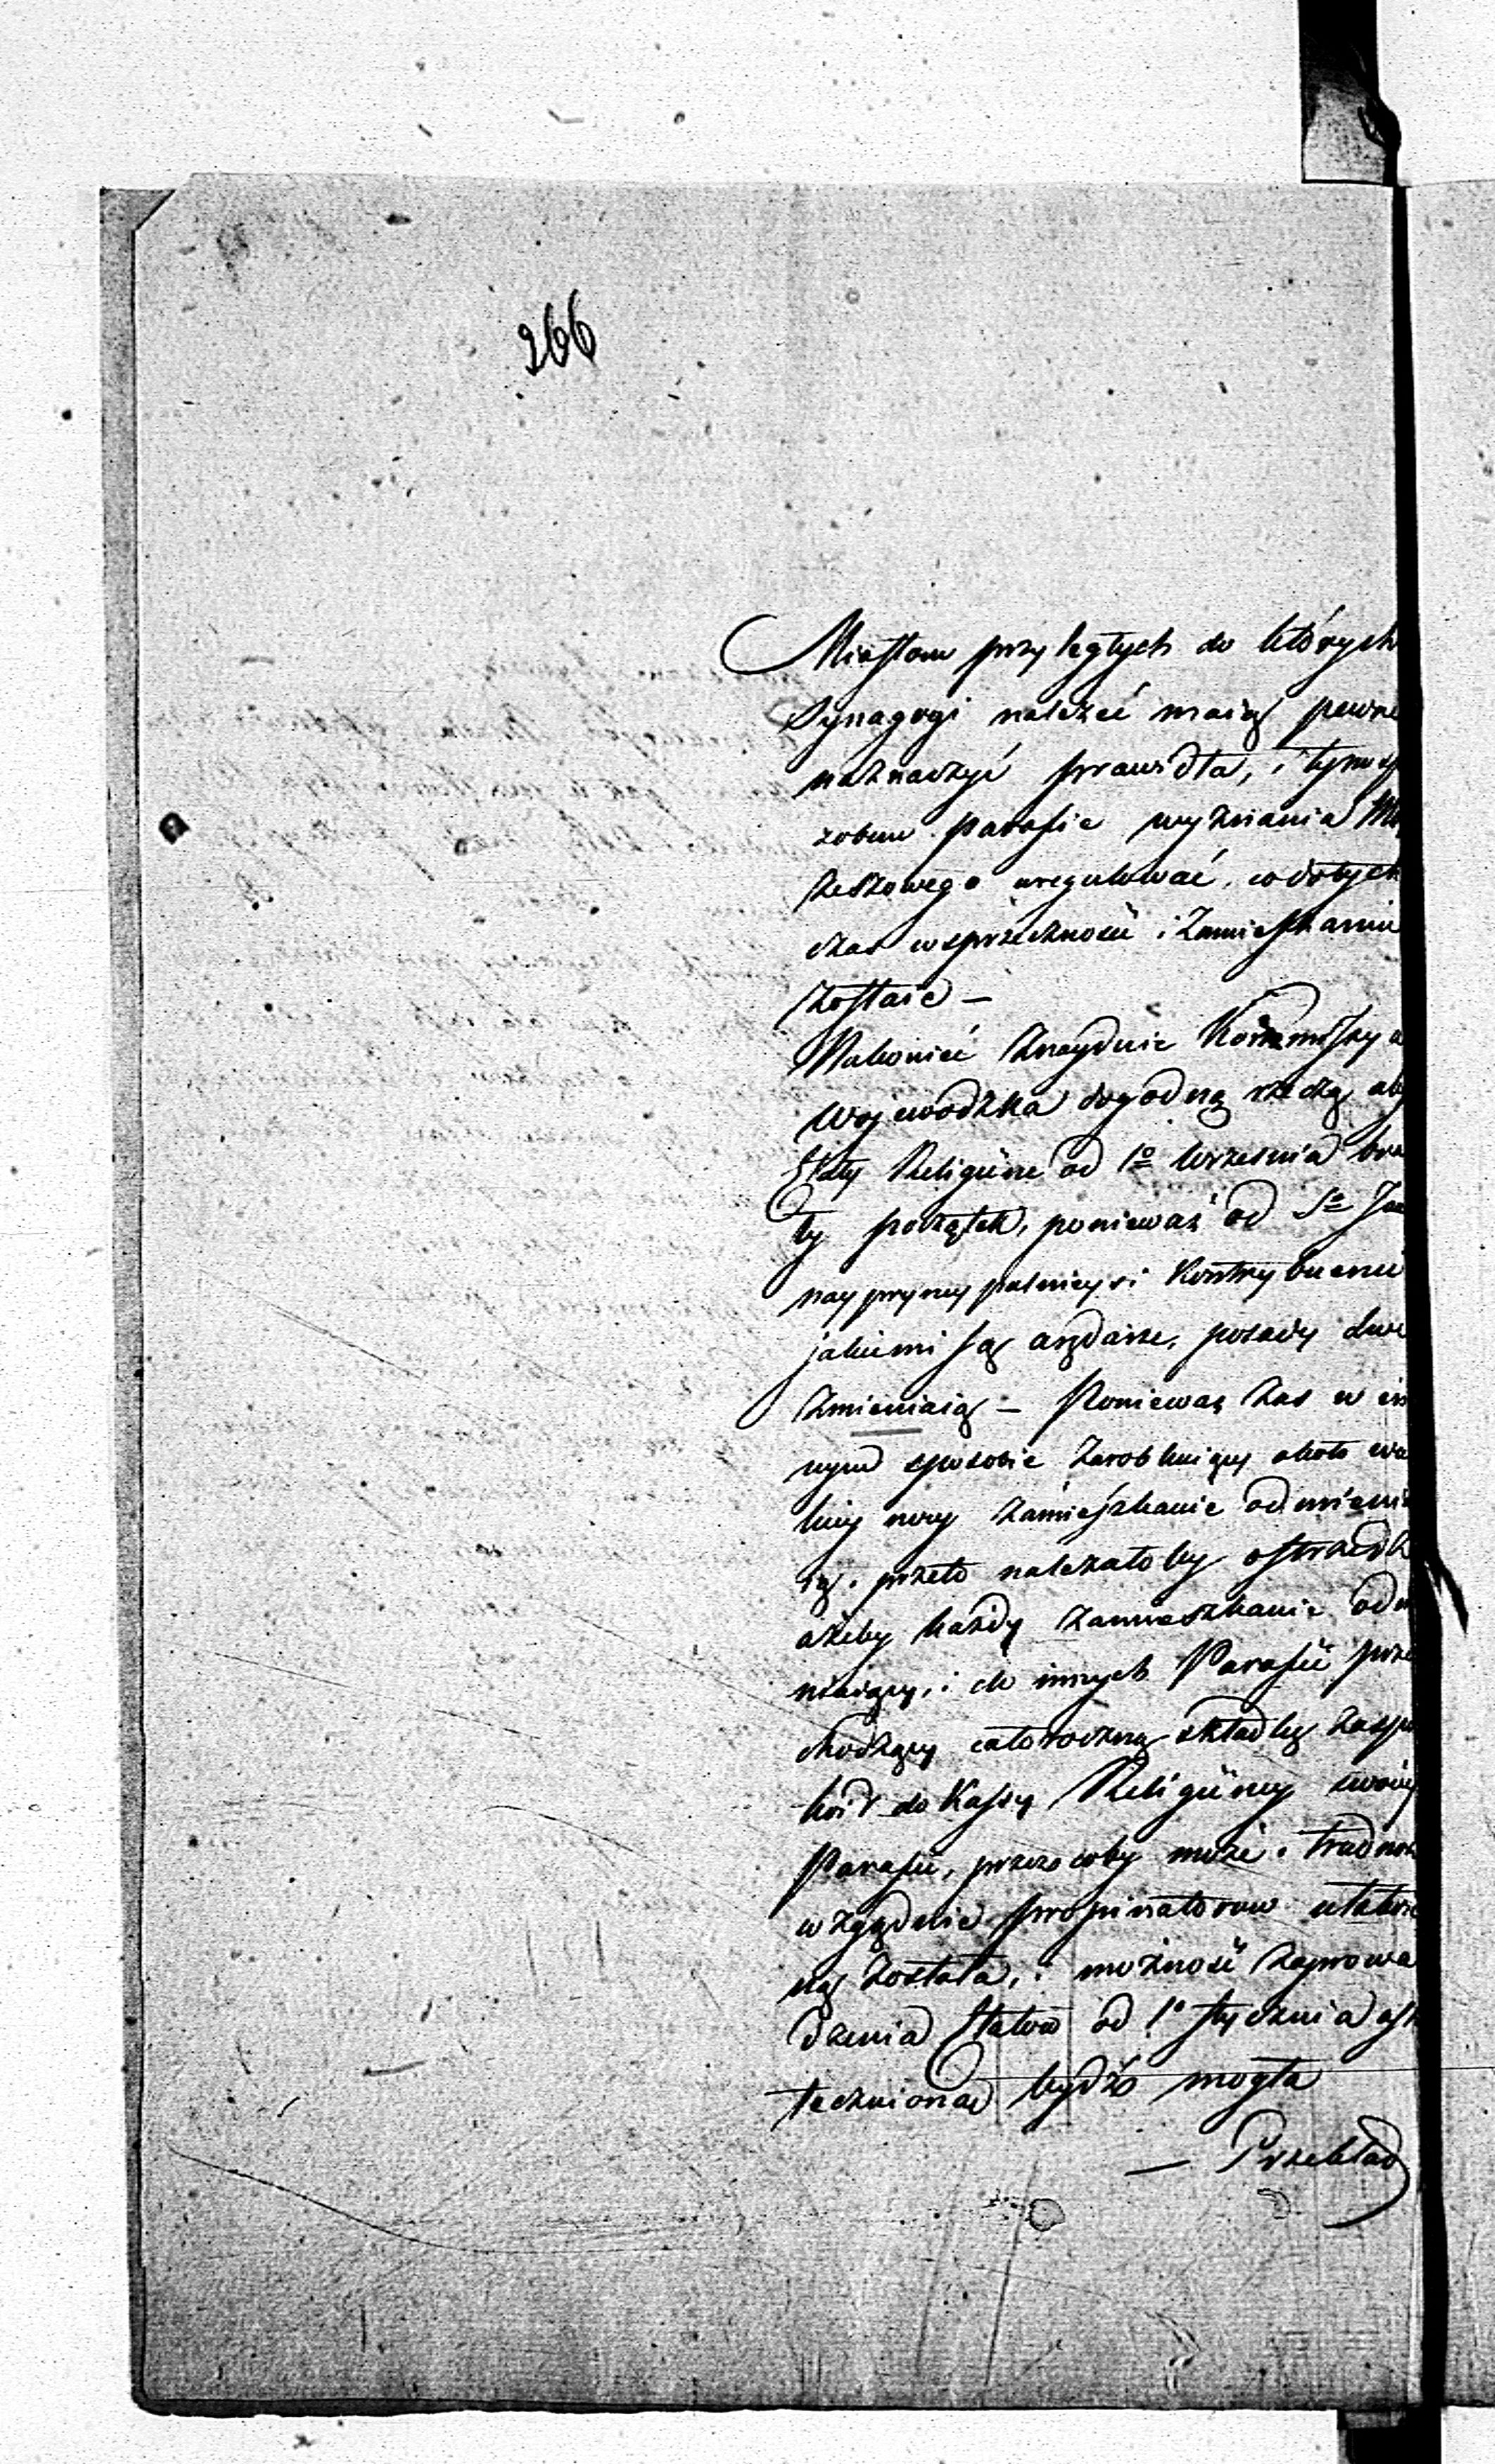 266
Miastom przyległych do których
Synagogi należeć maią pewne
naznaczyć prawidła, i tym sp
zobem parafie wyznania Mo
żeszowego uregulować, co dotych
czas w sprzeczności i Zamieszaniu
zostaie —
Nakoniec Znaydzie Kommissya
Wojewodzka dogodną rzeczą aby
Etaty Religiine od 1o Września bra
ły początek, ponieważ od So Jan
naypryncypalnieysi Kontrybuenci
jakiemi są arędarze, posady swe
Zmieniaią — Ponieważ Zas w in
nym sposobie Zarobkuiący około
nowy Zamieszkanie odmienia
ią, przeto należałoby ostrzedz
ażeby każdy Zamieszkanie odm
niaiący, i do innych Parafii prze
chodzący całoroczną składkę Zaspo
koił do Kassy Religiiney swoiey
Parafii, przezcoby może i trudność
względnie propinatorow ułatwio
ną Została, i możność Zaprowa
dzenia Etatow od 1o Stycznia usk
tecznioną bydźo mogła
— Przekład